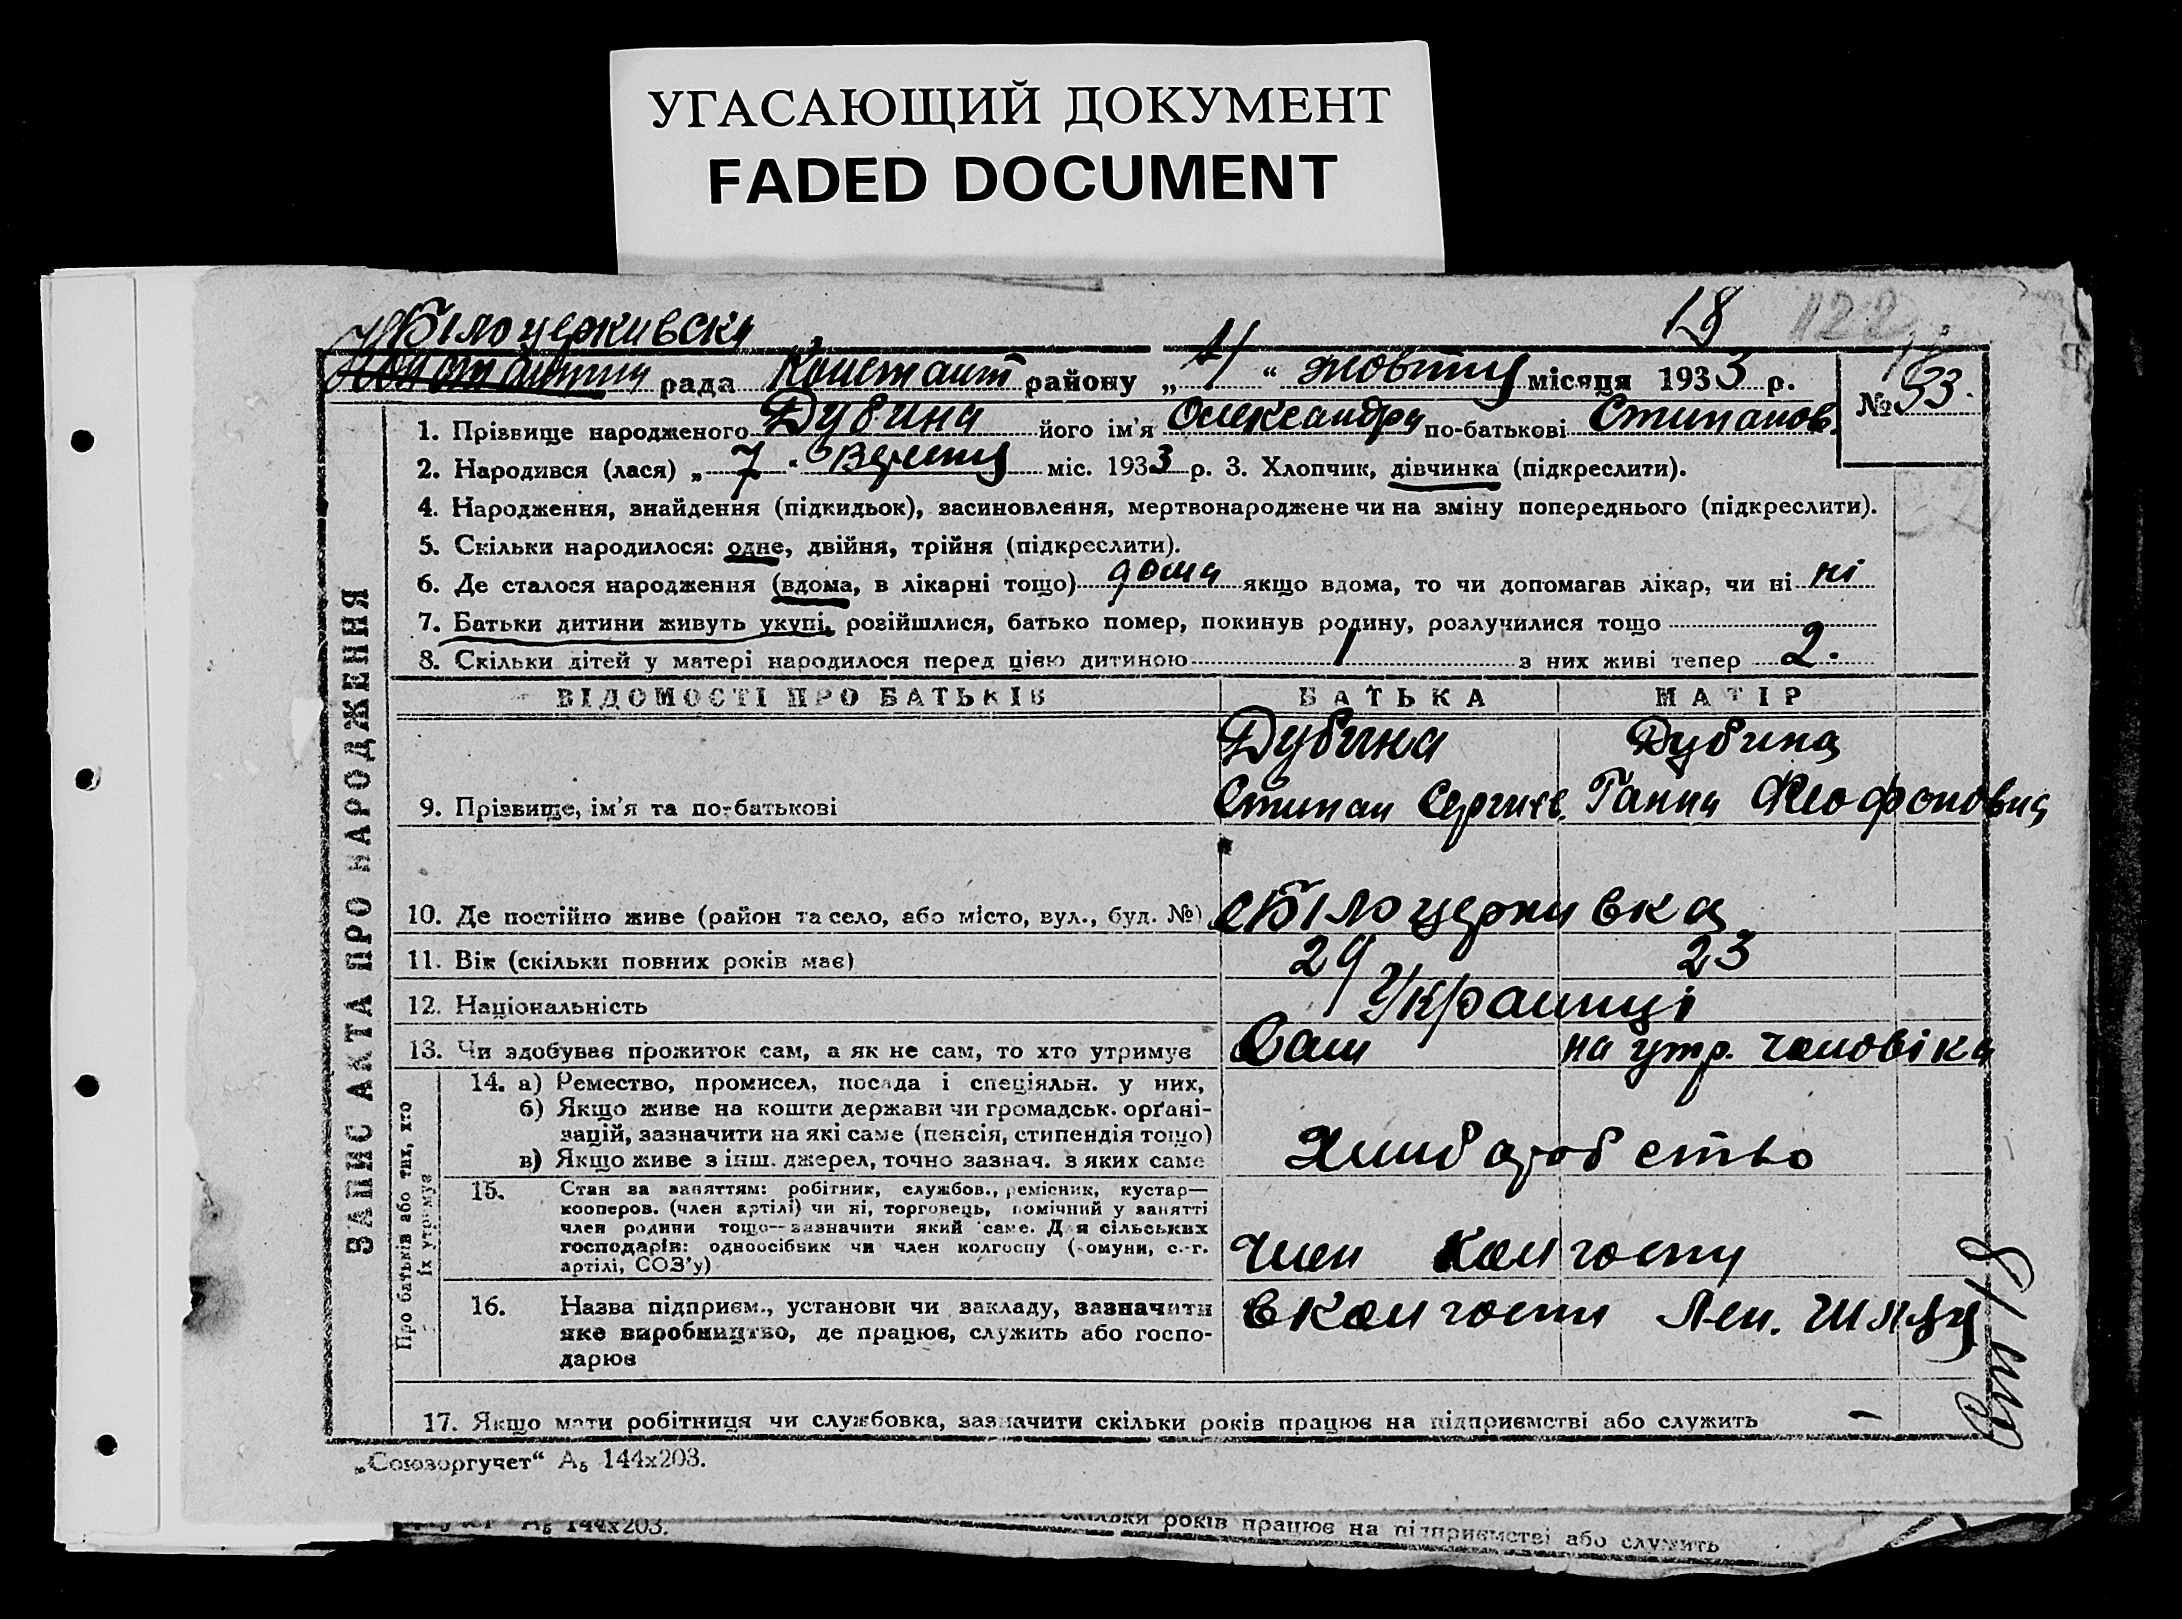 УГАСАЮЩИЙ ДОКУМЕНТ
FADED DOCUMENT
18 122
Білоцеркивска
рада Констант району „ 4 “ жовтня місяця 1933 р. № 53.
ЗАПИС АКТА ПРО НАРОДЖЕННЯ
1. Прізвище народженого Дубина його ім'я Олександра по-батькові Стипанов.
2. Народився (лася) „ 7 “ Вересня міс. 1933 р. 3. Хлопчик, дівчинка (підкреслити).
4. Народження, знайдення (підкидьок), засиновлення, мертвонароджене чи на зміну попереднього (підкреслити).
5. Скільки народилося: одне, двійня, трійня (підкреслити).
6. Де сталося народження (вдома, в лікарні тощо) дома якщо вдома, то чи допомагав лікар, чи ні ні
7. Батьки дитини живуть укупі, розійшлися, батько помер, покинув родину, розлучилися тощо
8. Скільки дітей у матері народилося перед цією дитиною 1 з них живі тепер 2.
ВІДОМОСТІ ПРО БАТЬКІВ БАТЬКА МАТІР
Дубина Дубина
9. Прізвище, ім'я та по-батькові Стипан Сергиєв. Ганна Феофоновна
10. Де постійно живе (район та село, або місто, вул., буд. №) с Білоцеркивка
11. Вік (скільки повних років має) 29 23
12. Національність Українці
13. Чи здобуває прожиток сам, а як не сам, то хто утримує Сам на утр. чоловіка
Про батьків або тих, хто їх утримує
14. а) Ремество, промисел, посада і спеціяльн. у них,
б) Якщо живе на кошти держави чи громадськ. орґані-
зацій, зазначити на які саме (пенсія, стипендія тощо)
в) Якщо живе з інш. джерел, точно зазнач. з яких саме
Хлибаробство
15. Стан за заняттям: робітник, службов., ремісник, кустар—
кооперов. (член артілі) чи ні, торговець, помічний у занятті
член родини тощо—зазначити який саме. Для сільських
господарів: одноосібник чи член колгоспу (комуни, с.-г.
артілі, СОЗ'у)
член колгоспу
16. Назва підприєм., установи чи закладу, зазначити
яке виробництво, де працює, служить або госпо-
дарює
в колгоспи Лен. Шляху
17. Якщо мати робітниця чи службовка, зазначити скільки років працює на підприємстві або служить –
„Союзоргучет“ А₅ 144х203.
А₅ 144х203.
скільки років працює на підприємстві або служить